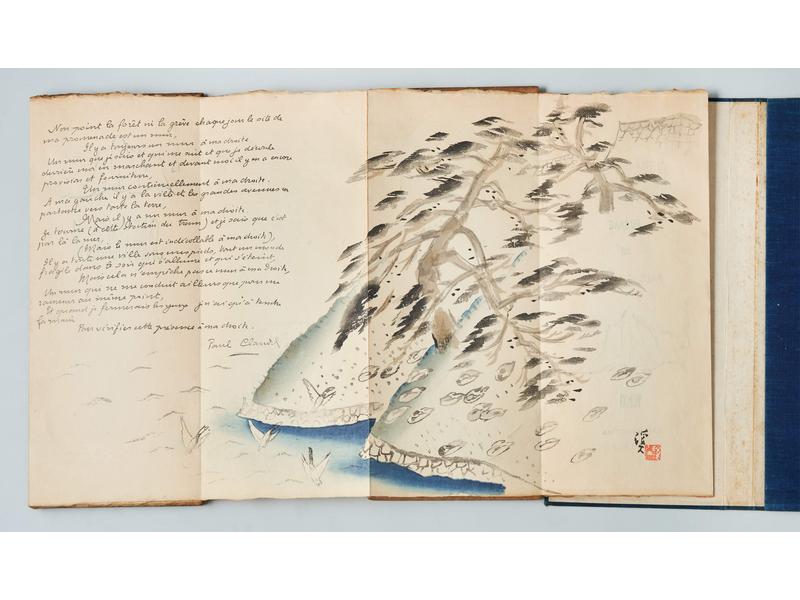 Non point la forêt ni la grève chaque jour le site de
ma promenade est un mur,
Il y a toujours un mur à ma droite
Un mur que je suis et qui me suit et que je déroule
derrière moi en marchant et devant moi il y en a encore
provision et fourniture,
Un mur continuellement à ma droite.
A ma gauche il y a la ville et les grandes avenues en
partance vers toute la terre,
Mais il y a un mur à ma droite.
Je tourne (à cette station du tram) et je sais que c'est
par là la mer,
(Mais le mur est indécollable à ma droite),
Il y a toute une ville sous mes pieds, tout un monde
fragile dans le soir qui s'allume et qui s'éteint,
Mais cela n'empêche pas ce mur à ma droite,
Un mur qui ne me conduit ailleurs que par une
au même point,
Et quand je fermerais les yeux je n'ai qu'à tendre
la main
Pour vérifier cette présence à ma droite.
Paul Claudel
渓